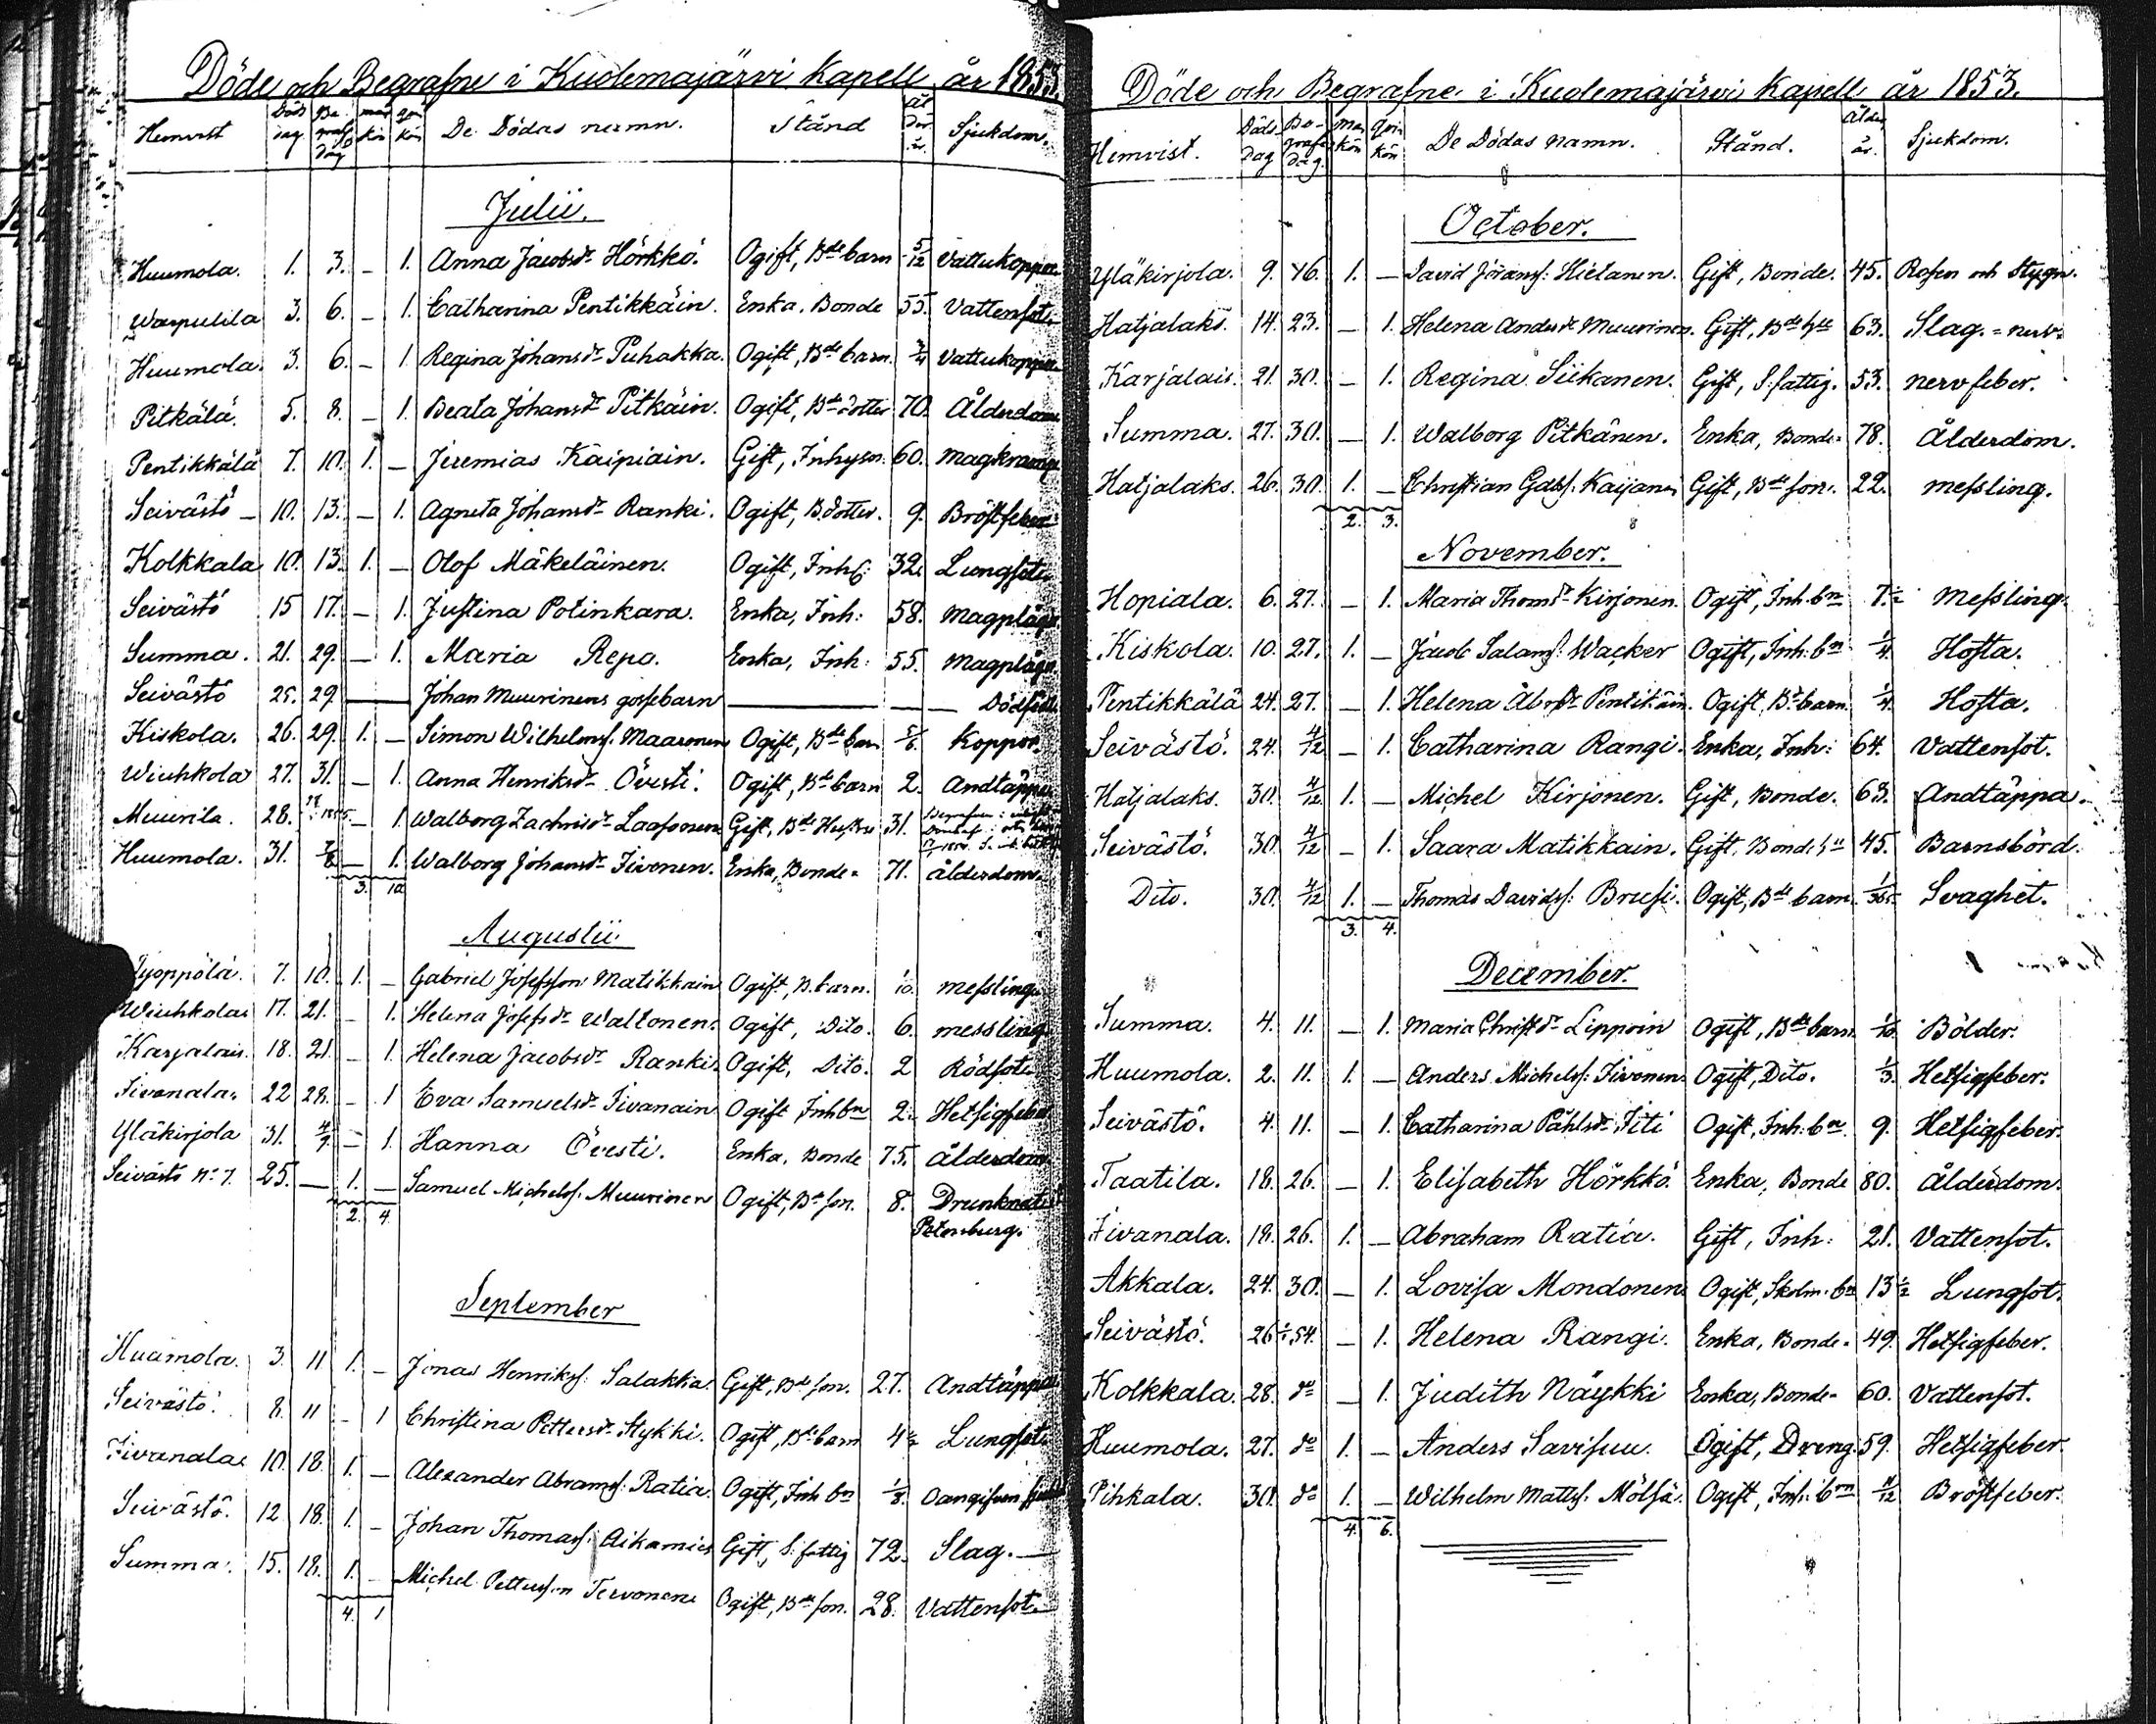 Döde och Begrafne i Kuolemajärvi Kapell år 1853.
Hemvist Döds dag Be graf. dag man kön qvi kön De Dödas namn. Stånd Ål der år. Sjukdom.
Julii.
Huumola. 1. 3. – 1. Anna Jacobsdr Hörkkö. Ogift, Bde barn 5/12 Vattukoppor
Warpulila 3. 6. – 1. Catharina Pentikkäin. Enka. Bonde 55. Vattensot.
Huumola. 3. 6. – 1 Regina Johansdr Puhakka. Ogift, Bde barn. 3/4 Vattukoppor
Pitkälä. 5. 8. – 1. Beata Johansdr Pitkäin. Ogift, Bde dotter 70. Ålderdom
Pentikkälä 7. 10. 1. – Jeremias Kaipiain. Gift, Inhysn. 60. Magkramp
Seivästö – 10. 13. – 1. Agneta Johansdr Ranki. Ogift, B.dotter. 9. Bröstfeber
Kolkkala 10. 13. 1. – Olof Mäkeläinen. Ogift, Inh: 32. Lungsot.
Seivästö 15 17. – 1. Justina Potinkara. Enka, Inh: 58. Magplåga
Summa. 21. 29. – 1. Maria Repo. Enka, Inh: 55. Magplåga
Seivästö 25. 29 — Johan Muurinens gossebarn — — Dödfödt.
Kiskola. 26. 29. 1. – Simon Wilhelmss. Maaronen Ogift, Bde barn 5/6. Koppor.
Wiuhkola 27. 31. – 1. Anna Henriksdr Övesti. Ogift, Bde barn 2. Andtäppa
Muurila. 28. – 1. Walborg Zachrisdr Laassonen Gift, Bde Hustru 31.
Huumola. 31. 7/8 – 1. Walborg Johansdr Iivonen. Enka, Bonde- 71. Ålderdom.
3. 10.
Augustii
Kyöppölä. 7. 10. 1. – Gabriel Josefsson Matikkain Ogift, B. barn. 1/10. messling.
Wiuhkola 17. 21. – 1. Helena Josefsdr Waltonen. Ogift, Dito. 6. messling.
Karjalais. 18. 21. – 1. Helena Jacobsdr Ranki. Ogift, Dito. 2 Rödsot.
Iivanala. 22 28. – 1 Eva Samuelsdr Iivanain Ogift Inh bn 2. Hetsigfeber
Yläkirjola 31. 4/9 – 1. Hanna Övesti. Enka, Bonde 75. Ålderdom
Seivästö No 7. 25. — 1. – Samuel Michelss. Muurinen Ogift, Bde son. 8. Drunknat i
Petersburg.
2. 4.
September
Huumola. 3. 11 1. – Jonas Henrikss. Salakka. Gift, Bde son. 27. Andtäppa
Seivästö. 8. 11 – 1 Christina Pettersdr Stykki. Ogift, Bde barn 4½ Lungsot.
Iivanala. 10. 18. 1. – Alexander Abramss. Ratia. Ogift, Inh bn 1/8. Oangifven sjukd
Seivästö. 12. 18. 1. – Johan Thomass. Aikamies Gift, S. fattig 72. Slag. —
Summa. 15. 18. 1. – Michel Petterson Tervonen Ogift, Bde son. 28. Vattensot.
4. 1
Döde och Begrafne i Kuolemajärvi Kapell år 1853.
Hemvist. Döds Dag Be- grafn dag. Man kön Qvin kön De Dödas namn. Stånd. Ålder år. Sjukdom.
October.
Yläkirjola. 9. 16. 1. – David Göranss. Hietanen. Gift, Bonde. 45. Rosen och Stygn.
Hatjalaks. 14. 23. – 1. Helena Andersdr Muurinen. Gift, Bde hu 63. Slag. = nerv.
Karjalais. 21. 30. – 1. Regina Siikanen. Gift, S. fattig. 53. nervfeber.
Summa. 27. 30. – 1. Walborg Pitkänen. Enka, Bonde- 78. Ålderdom.
Hatjalaks. 26. 30. 1. – Christian Gabrs. Kaijanen Gift, Bde son. 22. messling.
2. 3.
November.
Hopiala. 6. 27. – 1. Maria Thomsdr Kirjonen. Ogift, Inh. bn 7.½ Messling.
Kiskola. 10. 27. 1. – Jacob Salams. Wacker Ogift, Inh. bn ¼ Hosta.
Pentikkälä 24. 27. – 1. Helena Abrsdr Pentikäin. Ogift, Bde barn. ¼ Hosta.
Seivästö. 24. 4/12 – 1. Catharina Rangi. Enka, Inh: 64. Vattensot.
Hatjalaks. 30. 4/12 1. – Michel Kirjonen. Gift, Bonde. 63. Andtäppa.
Seivästö. 30. 4/12 – 1. Saara Matikkain. Gift, Bonde hu 45. Barnsbörd.
Dito. 30. 4/12 1. – Thomas Davidss. Bruusi. Ogift, Bde barn 1/365. Svaghet.
3. 4.
December.
Summa. 4. 11. – 1. Maria Christdr Lippoin Ogift, Bde barn. 1/10. Bölder.
Huumola. 2. 11. 1. – Anders Michelss. Iivonen Ogift, Dito. 1/3. Hetsigfeber.
Seivästö. 4. 11. – 1. Catharina Påhlsdr Iiti Ogift, Inh: bn. 9. Hetsigfeber.
Taatila. 18. 26. – 1. Elisabeth Hörkkö. Enka, Bonde 80. Ålderdom.
Iivanala. 18. 26. 1. – Abraham Ratia. Gift, Inh: 21. Vattensot.
Akkala. 24. 30. – 1. Lovisa Mondonen Ogift, Skolm. bn 13½ Lungsot.
Seivästö. 26 1/1 54. – 1. Helena Rangi. Enka, Bonde- 49. Hetsigfeber.
Kolkkala. 28. do – 1. Judith Näykki Enka, Bonde- 60. Vattensot.
Huumola. 27. do 1. – Anders Savisuu. Ogift, Dreng. 59. Hetsigfeber.
Pihkala. 30. do 1. – Wilhelm Mattss. Mölsä. Ogift, Inh: bn 11/12 Bröstfeber.
4. 6.